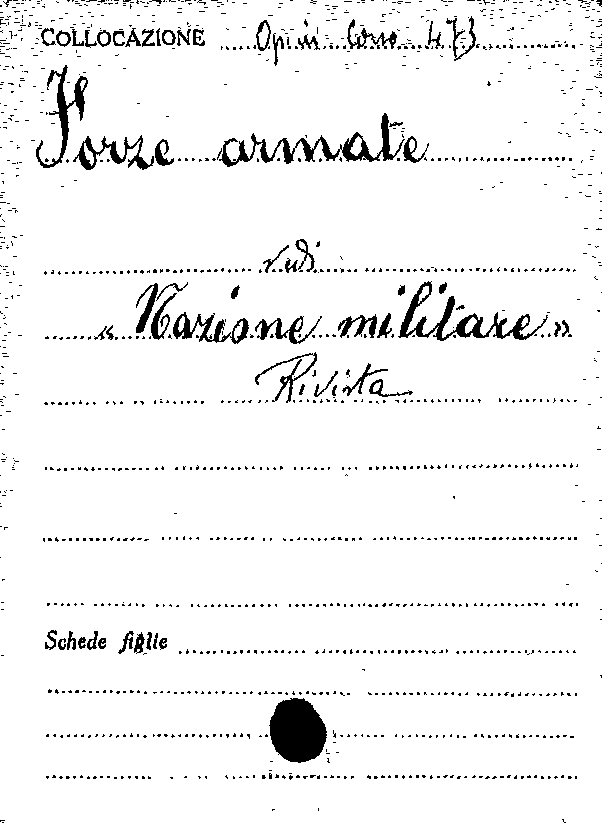 COLLOCAZIONE Opin Corso 473
Forze armate
vedi
« Nazione militare »
Rivista
Schede figlie